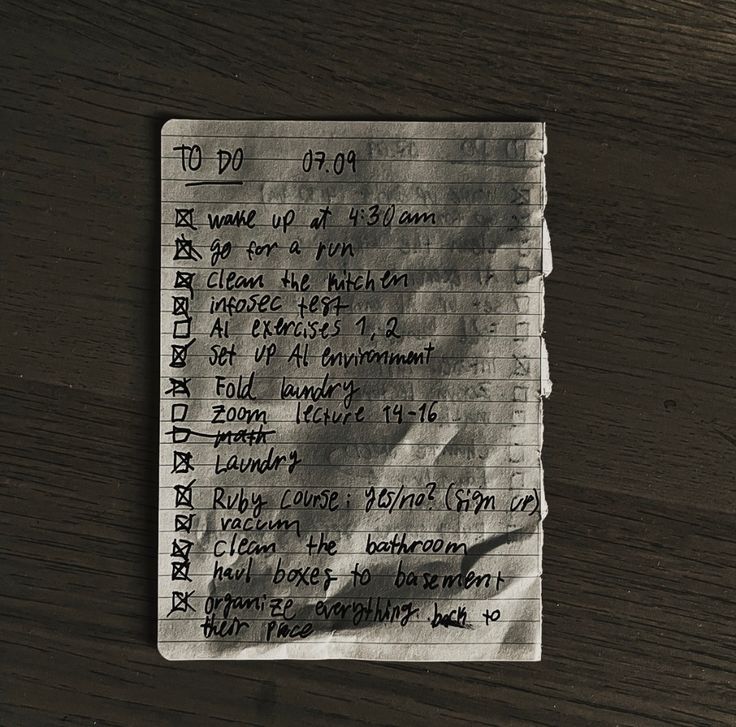 TO DO 07.09
☒ wake up at 4:30am
☒ go for a run
☒ clean the kitchen
☒ infosec test
☐ AI exercises 1, 2
☒ set up AI environment
☒ Fold laundry
☐ Zoom lecture 14-16
☐ math
☒ Laundry
☒ Ruby course: yes/no? (sign up)
☒ vaccum
☒ clean the bathroom
☒ haul boxes to basement
☒ organize everything back to
their place